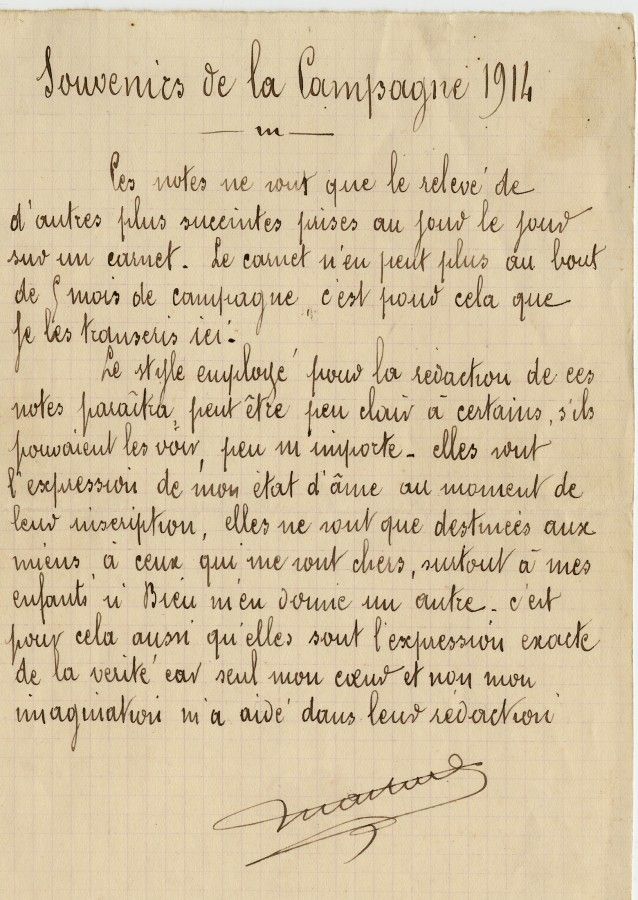 Souvenirs de la Campagne 1914
Ces notes ne sont que le relevé de
d'autres plus succintes prises au jour le jour
sur un carnet. Le carnet n'en peut plus au bout
de 5 mois de campagne, c'est pour cela que
je les transcris ici.
Le style employé pour la rédaction de ces
notes paraîtra peut être peu clair à certains, s'ils
pouvaient les voir, peu m'importe - elles sont
l'expression de mon état d'âme au moment de
leur inscription, elles ne sont que destinées aux
miens, à ceux qui me sont chers, surtout à mes
enfants si Dieu m'en donne un autre - c'est
pour cela aussi qu'elles sont l'expression exacte
de la verité car seul mon cœur et non mon
imagination m'a aidé dans leur rédaction